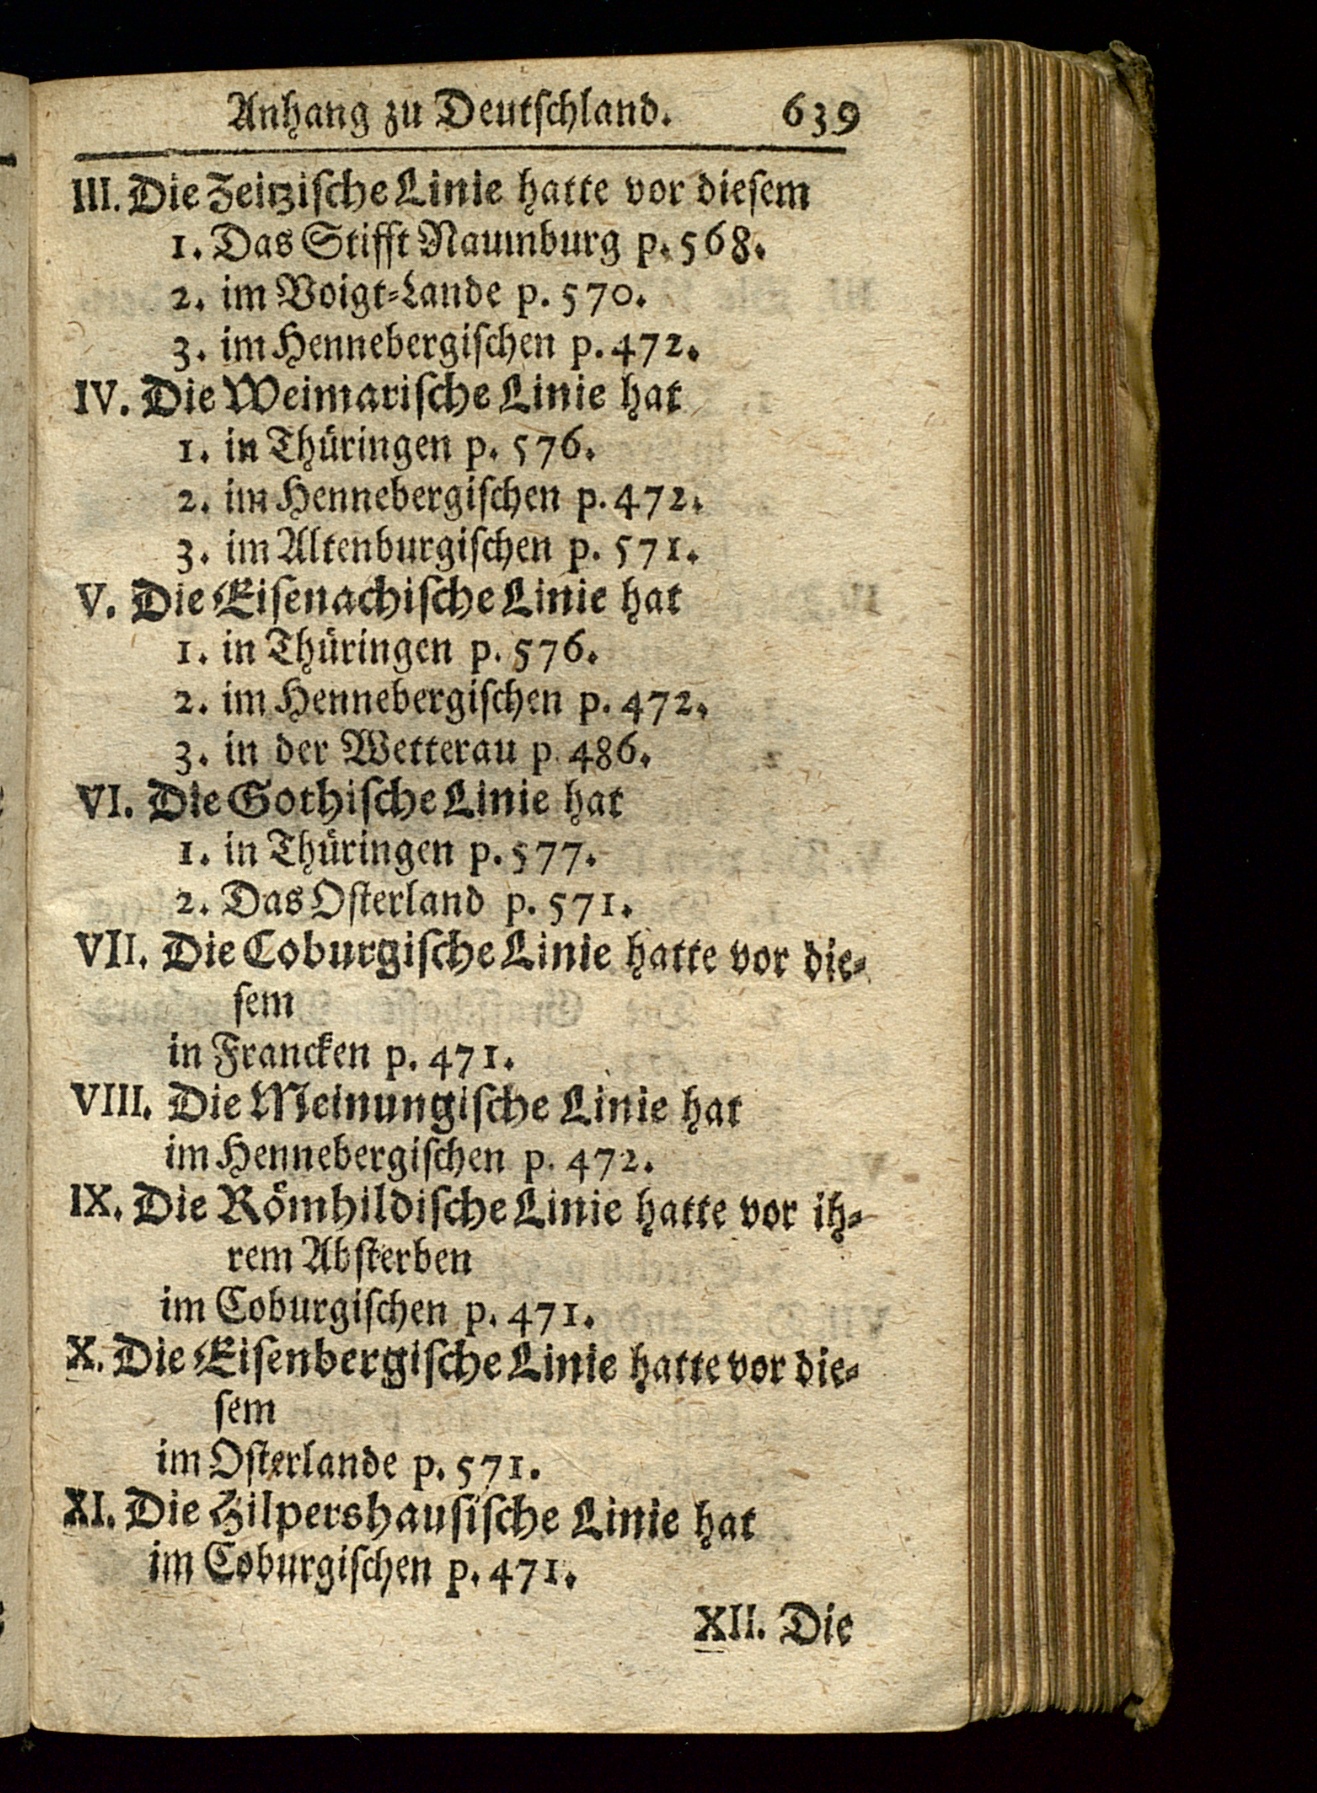 Anhang zu Deutſchland. 639
III. Die Zeitziſche Linie hatte vor dieſem
1. Das Stifft Naumburg p. 568.
2. im Voigt-Lande p. 570.
3. im Hennebergiſchen p. 472.
IV. Die Weimariſche Linie hat
1. in Thüringen p. 576.
2. im Hennebergiſchen p. 472.
3. im Altenburgiſchen p. 571.
V. Die Eiſenachiſche Linie hat
1. in Thüringen p. 576.
2. im Hennebergiſchen p. 472.
3. in der Wetterau p. 486.
VI. Die Gothiſche Linie hat
1. in Thüringen p. 577.
2. Das Oſterland p. 571.
VII. Die Coburgiſche Linie hatte vor die-
ſem
in Francken p. 471.
VIII. Die Meinungiſche Linie hat
im Hennebergiſchen p. 472.
IX. Die Römhildiſche Linie hatte vor ih-
rem Abſterben
im Coburgiſchen p. 471.
X. Die Eiſenbergiſche Linie hatte vor die-
ſem
im Oſterlande p. 571.
XI. Die Hilpershauſiſche Linie hat
im Coburgiſchen p. 471.
XII. Die